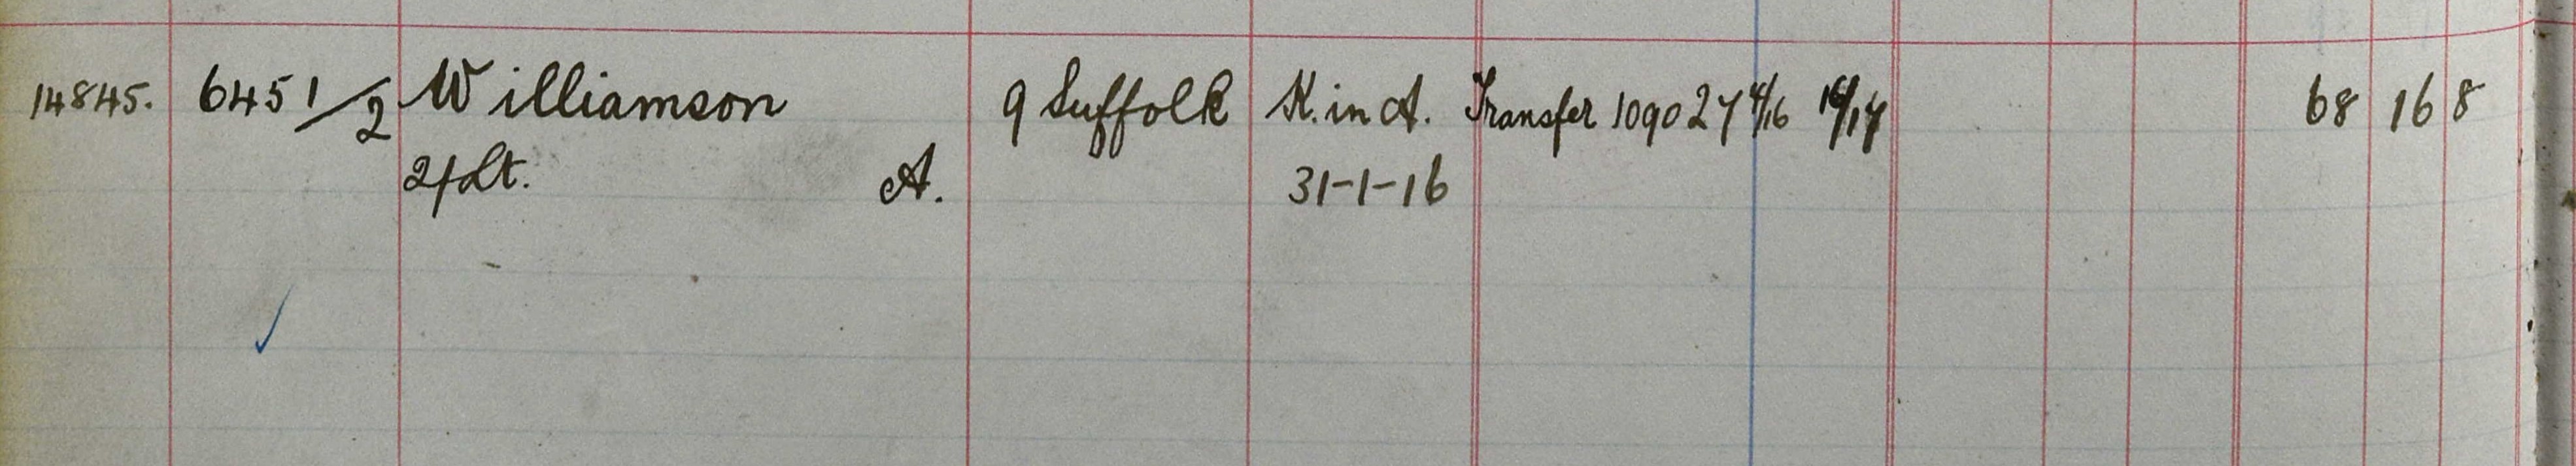 14845. 6451/2 Williamson 9 Suffolk K. in A. Transfer 109027 4/16 68 16 8
2/Lt. A. 31-1-16